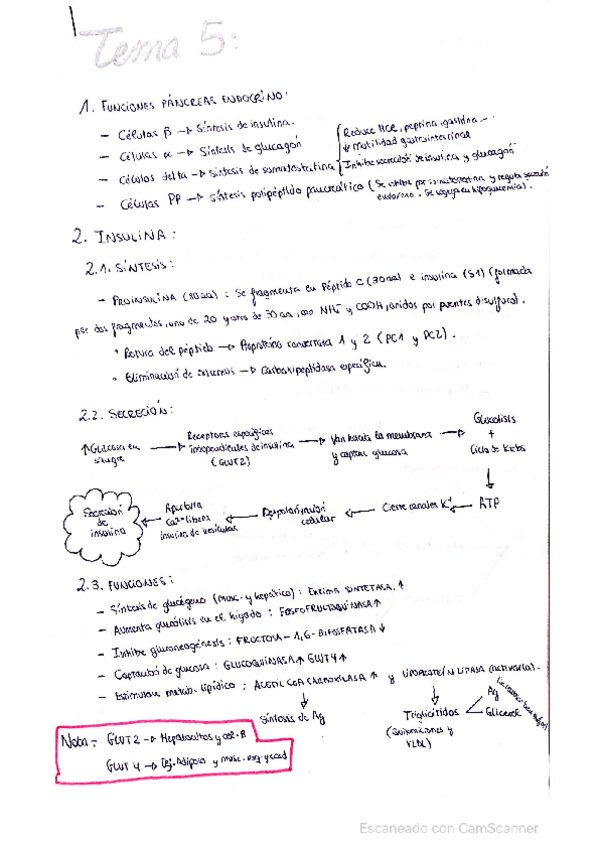 Tema 5:
1. FUNCIONES PÁNCREAS ENDOCRINO:
- Células β → Síntesis de insulina.
- Células α → Síntesis de glucagón
- Células delta → Síntesis de somatostatina
Reduce HCl, pepsina, gastrina
↓ Motilidad gastrointestinal
Inhibe secreción de insulina y glucagón
- Células PP → síntesis polipéptido pancreático (Se inhibe por somatostatina y regula secreción
endocrina. Se segrega en hipoglucemia).
2. INSULINA:
2.1. SÍNTESIS:
- PROINSULINA : Se fragmenta en Péptido C (30aa) e insulina (51) (formada
por dos fragmentos, uno de 20 y otro de 30 aa, con y COOH, unidos por puentes disulfuro).
• Rotura del péptido → Proproteína convertasa 1 y 2 (PC1 y PC2).
• Eliminación de → Carboxipeptidasa específica.
2.2. SECRECIÓN:
↑Glucosa en sangre → Receptores específicos independientes de insulina (GLUT2) → Van hasta la membrana y captan glucosa → Glucólisis + Ciclo de Krebs
↓
ATP → Cierre canales K⁺ → Despolarización celular → Apertura Ca²⁺ libera insulina de vesículas → Secreción de insulina
2.3. FUNCIONES:
- Síntesis de glucógeno (Musc. y hepático) : Enzima SINTETASA ↑
- Aumenta glucólisis en el hígado : FOSFOFRUCTOQUINASA ↑
- Inhibe gluconeogénesis : FRUCTOSA-1,6-BIFOSFATASA ↓
- Captación de glucosa : GLUCOQUINASA ↑ GLUT4 ↑
- Estimulan metab. lipídico : ACETIL COA CARBOXILASA ↑ y LIPOPROTEÍN LIPASA (activarla).
Síntesis de Ag
Triglicéridos
(Quilomicrones y VLDL)
Ag
Glicerol
Nota: GLUT2 → Hepatocitos y cel. β
GLUT4 → Tej. Adiposo y musc. esq. y card
Escaneado con CamScanner